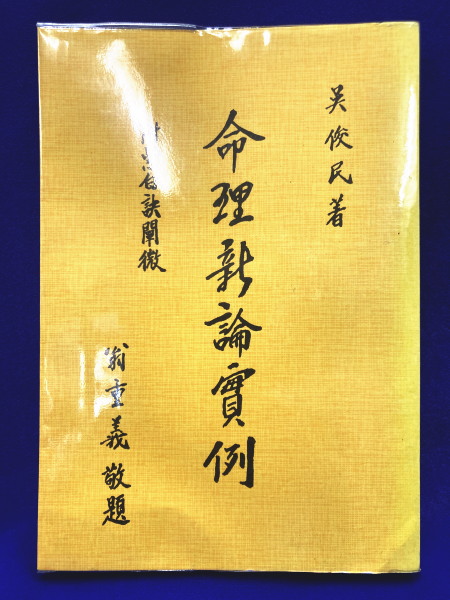 吳俊民著
命理新論實例
訣闡微
翁重義敬題